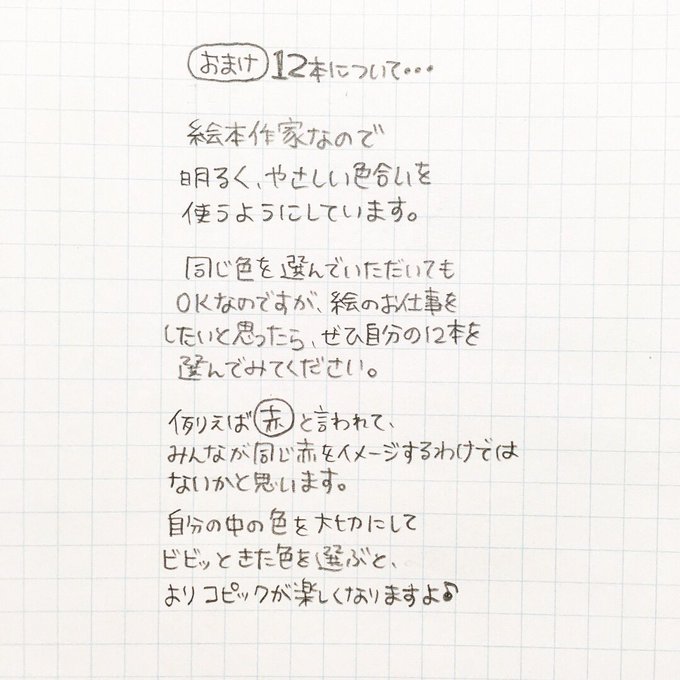 おまけ 12本について・・・
絵本作家なので
明るく、やさしい色合いを
使うようにしています。
同じ色を選んでいただいても
OKなのですが、絵のお仕事を
したいと思ったら、ぜひ自分の12本を
選んでみてください。
例えば赤と言われて、
みんなが同じ赤をイメージするわけでは
ないかと思います。
自分の中の色を大切にして
ビビッときた色を選ぶと、
よりコピックが楽しくなりますよ♪